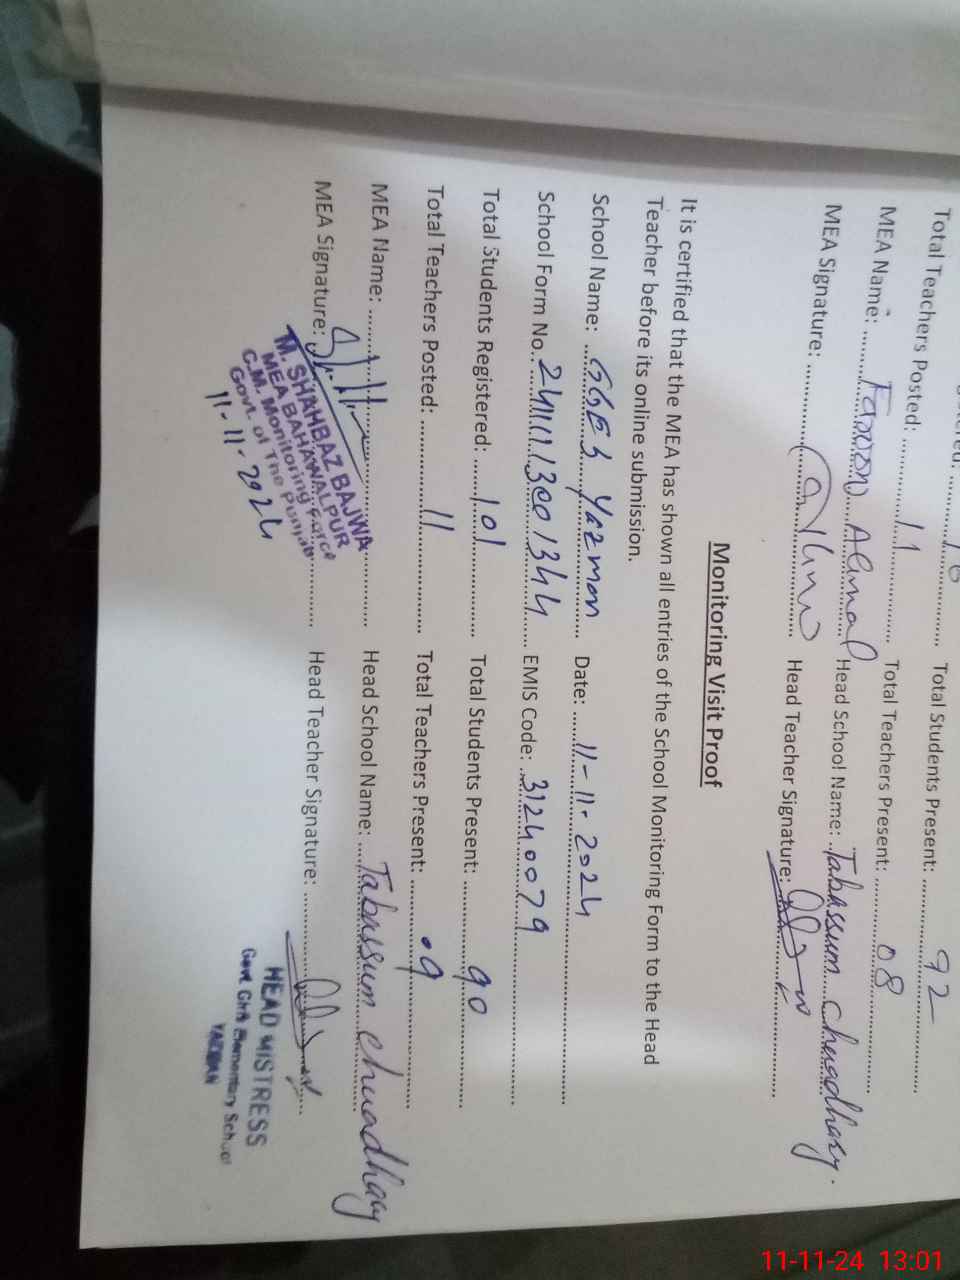 Total Teachers Posted: 11 Total Students Present: 92
MEA Name: Total Teachers Present: 08
MEA Signature: Head School Name: Tabassum Chuadhary.
Head Teacher Signature:
Monitoring Visit Proof
It is certified that the MEA has shown all entries of the School Monitoring Form to the Head
Teacher before its online submission.
School Name: GGES Yazman Date: 11-11-2024
School Form No. EMIS Code: 31240079
Total Students Registered: 101 Total Students Present: 90
Total Teachers Posted: 11 Total Teachers Present: 09
MEA Name: Head School Name: Tabassum Chuadhary
MEA Signature: Head Teacher Signature:
M. SHAHBAZ BAJWA
MEA BAHAWALPUR
C.M. Monitoring Force
Govt. of The Punjab
11-11-2024
HEAD MISTRESS
Govt. Girls Elementary School
YAZMAN
11-11-24 13:01